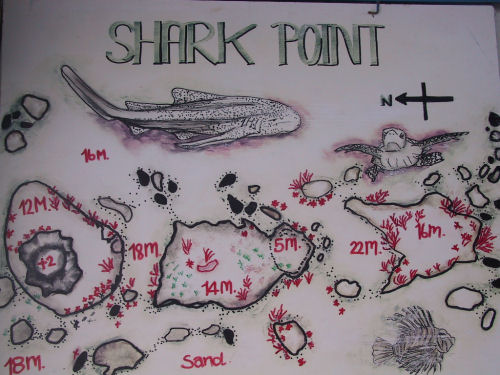 SHARK POINT
N
16M.
12M
+2
18M
5M.
14M.
22M.
16M.
18M.
Sand